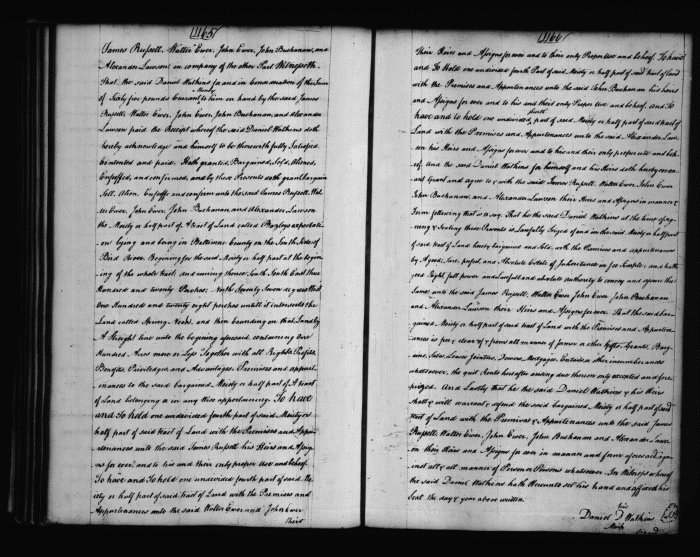 1165
James Russell, Walter Ewer, John Ewer, John Buchanan, and
Alexander Lawson in company of the other Part Witnesseth
That, the said Daniel Watkins for and in Consideration of the Sum
of Sixty five pounds Current Money to him in hand by the said James
Russell Walter Ewer, John Ewer, John Buchanan, and Alexander
Lawson paid the Receipt whereof the said Daniel Watkins doth
hereby acknowledge and himself to be therewith fully Satisfied
Contented and paid. Hath granted, Bargained, Sold, Aliened,
Enfeoffed, and confirmed, and by these Presents doth grant bargain
Sell, Alien, Enfeoffe and confirm unto the said James Russell, Wal-
ter Ewer, John Ewer, John Buchanan, and Alexander Lawson
the Moiety or half part of A tract of Land called Bayleys expectati-
on lying and being in Baltimore County on the South Side of
Bird River, Beginning for the said Moiety or half part at the beginn-
ing of the whole tract, and running thence South South East three
Hundred and twenty Perches, North Seventy Seven degrees West
One Hundred and twenty eight perches untill it intersects the
Land called Spring Neck, and then bounding on that Land by
A Straight line unto the begining aforesaid, containing One
Hundred Acres more or Less Together with all Rights Profits
Benefits, Priviledges and Advantages, Premises and appurt-
enances to the said bargained Moiety or half part of A tract
of Land belonging or in any wise appertaining To have
and To hold one undivided fourth part of said Moiety or
half part of said tract of Land with the Premises and Appur-
tenances unto the said James Russell his Heirs and Assig-
ns for ever, and to his and their only proper Use and behoof.
To have and To hold one undivided fourth part of said Mo-
iety or half part of said tract of Land with the Premises and
Appurtenances unto the said Walter Ewer and John Ewer
their
1166
Their Heirs and Assigns for ever and to their only Proper Use and behoof. To have
and To Hold one undivided fourth Part of said Moiety or half part of said tract of Land
with the Premises and Appurtenances unto the said John Buchanan his heirs
and Assigns for ever and to his and their only Proper Use and behoof. And To
have and to hold one undivided fourth part of said Moiety or half part of said tract of
Land with the Premises and Appurtenances unto the said Alexander Law-
son his Heirs and Assigns for ever and to his and their only proper use and beh-
oof, And the said Daniel Watkins for himself and his Heirs doth hereby coven-
ant Grant and agree to & with the said James Russell, Walter Ewer, John Ewer
John Buchanan, and Alexander Lawson their Heirs and Assigns in manner &
Form following that is to say, That he the said Daniel Watkins at the time of sig-
ning & Sealing these Presents is Lawfully Seized of and in the said Moiety or half part
of said tract of Land hereby bargained and Sold, with the Premises and appurtenances
by A good, Sure, perfect, and Absolute Estate of Inheritance in fee Simple; and hath
good Right full power and Lawfull and absolute authority to convey and assure the
Same unto the said James Russell, Walter Ewer John Ewer John Buchanan
and Alexander Lawson their Heirs and Assigns for ever. That the said bar-
gained, Moiety or half part of said tract of Land with the Premises and Appurten-
ances is free & clear of & from all manner of former & other Gifts, Grants, Barg-
ains, Sales, Leases Jointures, Dowers, Mortgages, Entails or other incumberances
whatsoever, the quit Rents hereafter arising due thereon only excepted and fore-
prized. And Lastly that he the said Daniel Watkins & his Heirs
shall & will warrant & defend the said bargained, Moiety or half part of said
tract of Land with the Premises & Appurtenances unto the said James
Russell, Walter Ewer, John Ewer, John Buchanan and Alexander Laws-
on their Heirs and Assigns for ever in manner and form aforesaid again-
st all & all manner of Person or Persons whatsoever. In Witness whereof
the said Daniel Watkins hath Hereunto set his hand and affixed his
Seal the day & year above written.
his
Daniel D Watkins
Mark